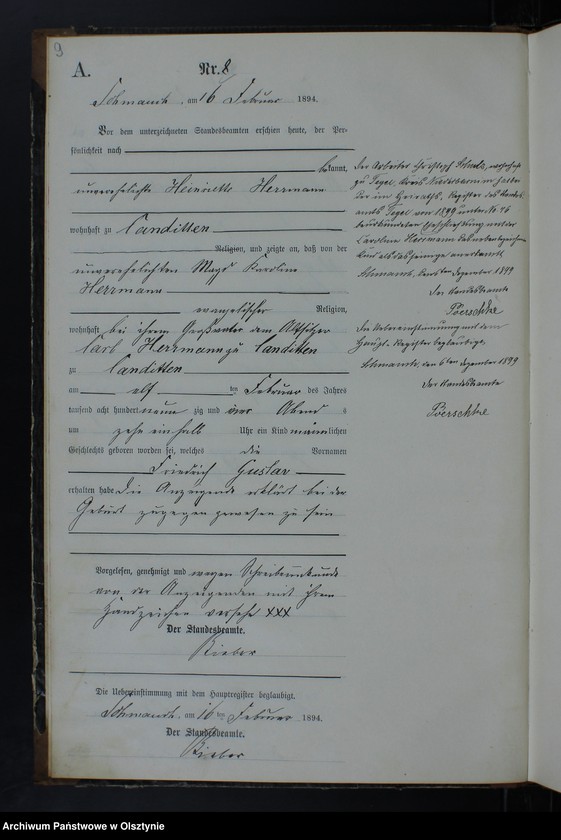 9
A.
Nr. 8
Schmauch, am 16 Februar 1894.
Vor dem unterzeichneten Standesbeamten erschien heute, der Per-
sönlichkeit nach
bekannt,
unverehelichte Henriette Herrmann
wohnhaft zu Canditten
Religion, und zeigte an, daß von der
unverehelichten Magd Karoline
Herrmann
evangelischer Religion,
wohnhaft bei ihrem Großvater dem Altsitzer
Carl Herrmann zu Canditten
zu Canditten
am elf ten Februar des Jahres
tausend acht hundert neun zig und vier Abend s
um zehn einhalb Uhr ein Kind männlichen
Geschlechts geboren worden sei, welches die Vornamen
Friedrich Gustav
erhalten habe. Die Anzeigende erklärt bei der
Geburt zugegen gewesen zu sein
Vorgelesen, genehmigt und wegen Schreibensunkunde
von der Anzeigenden mit ihrem
Handzeichen versehen XXX
Der Standesbeamte.
Rieber
Die Uebereinstimmung mit dem Hauptregister beglaubigt.
Schmauch, am 16 ten Februar 1894.
Der Standesbeamte.
Rieber
Der Arbeiter Christoph Schulz, wohnhaft
zu Tegel, Kreis Niederbarnim hat in
der im Heiraths-Register des Standes-
amts Tegel von 1899 unter No 46
beurkundeten Eheschließung mit der
Caroline Herrmann das nebenbezeichnete
Kind als das seinige anerkannt
Schmauch, den 6ten Dezember 1899
Der Standesbeamte
Pöerschke
Die Uebereinstimmung mit dem
Haupt-Register beglaubigt.
Schmauch, den 6ten Dezember 1899
Der Standesbeamte
Pöerschke
Archiwum Państwowe w Olsztynie